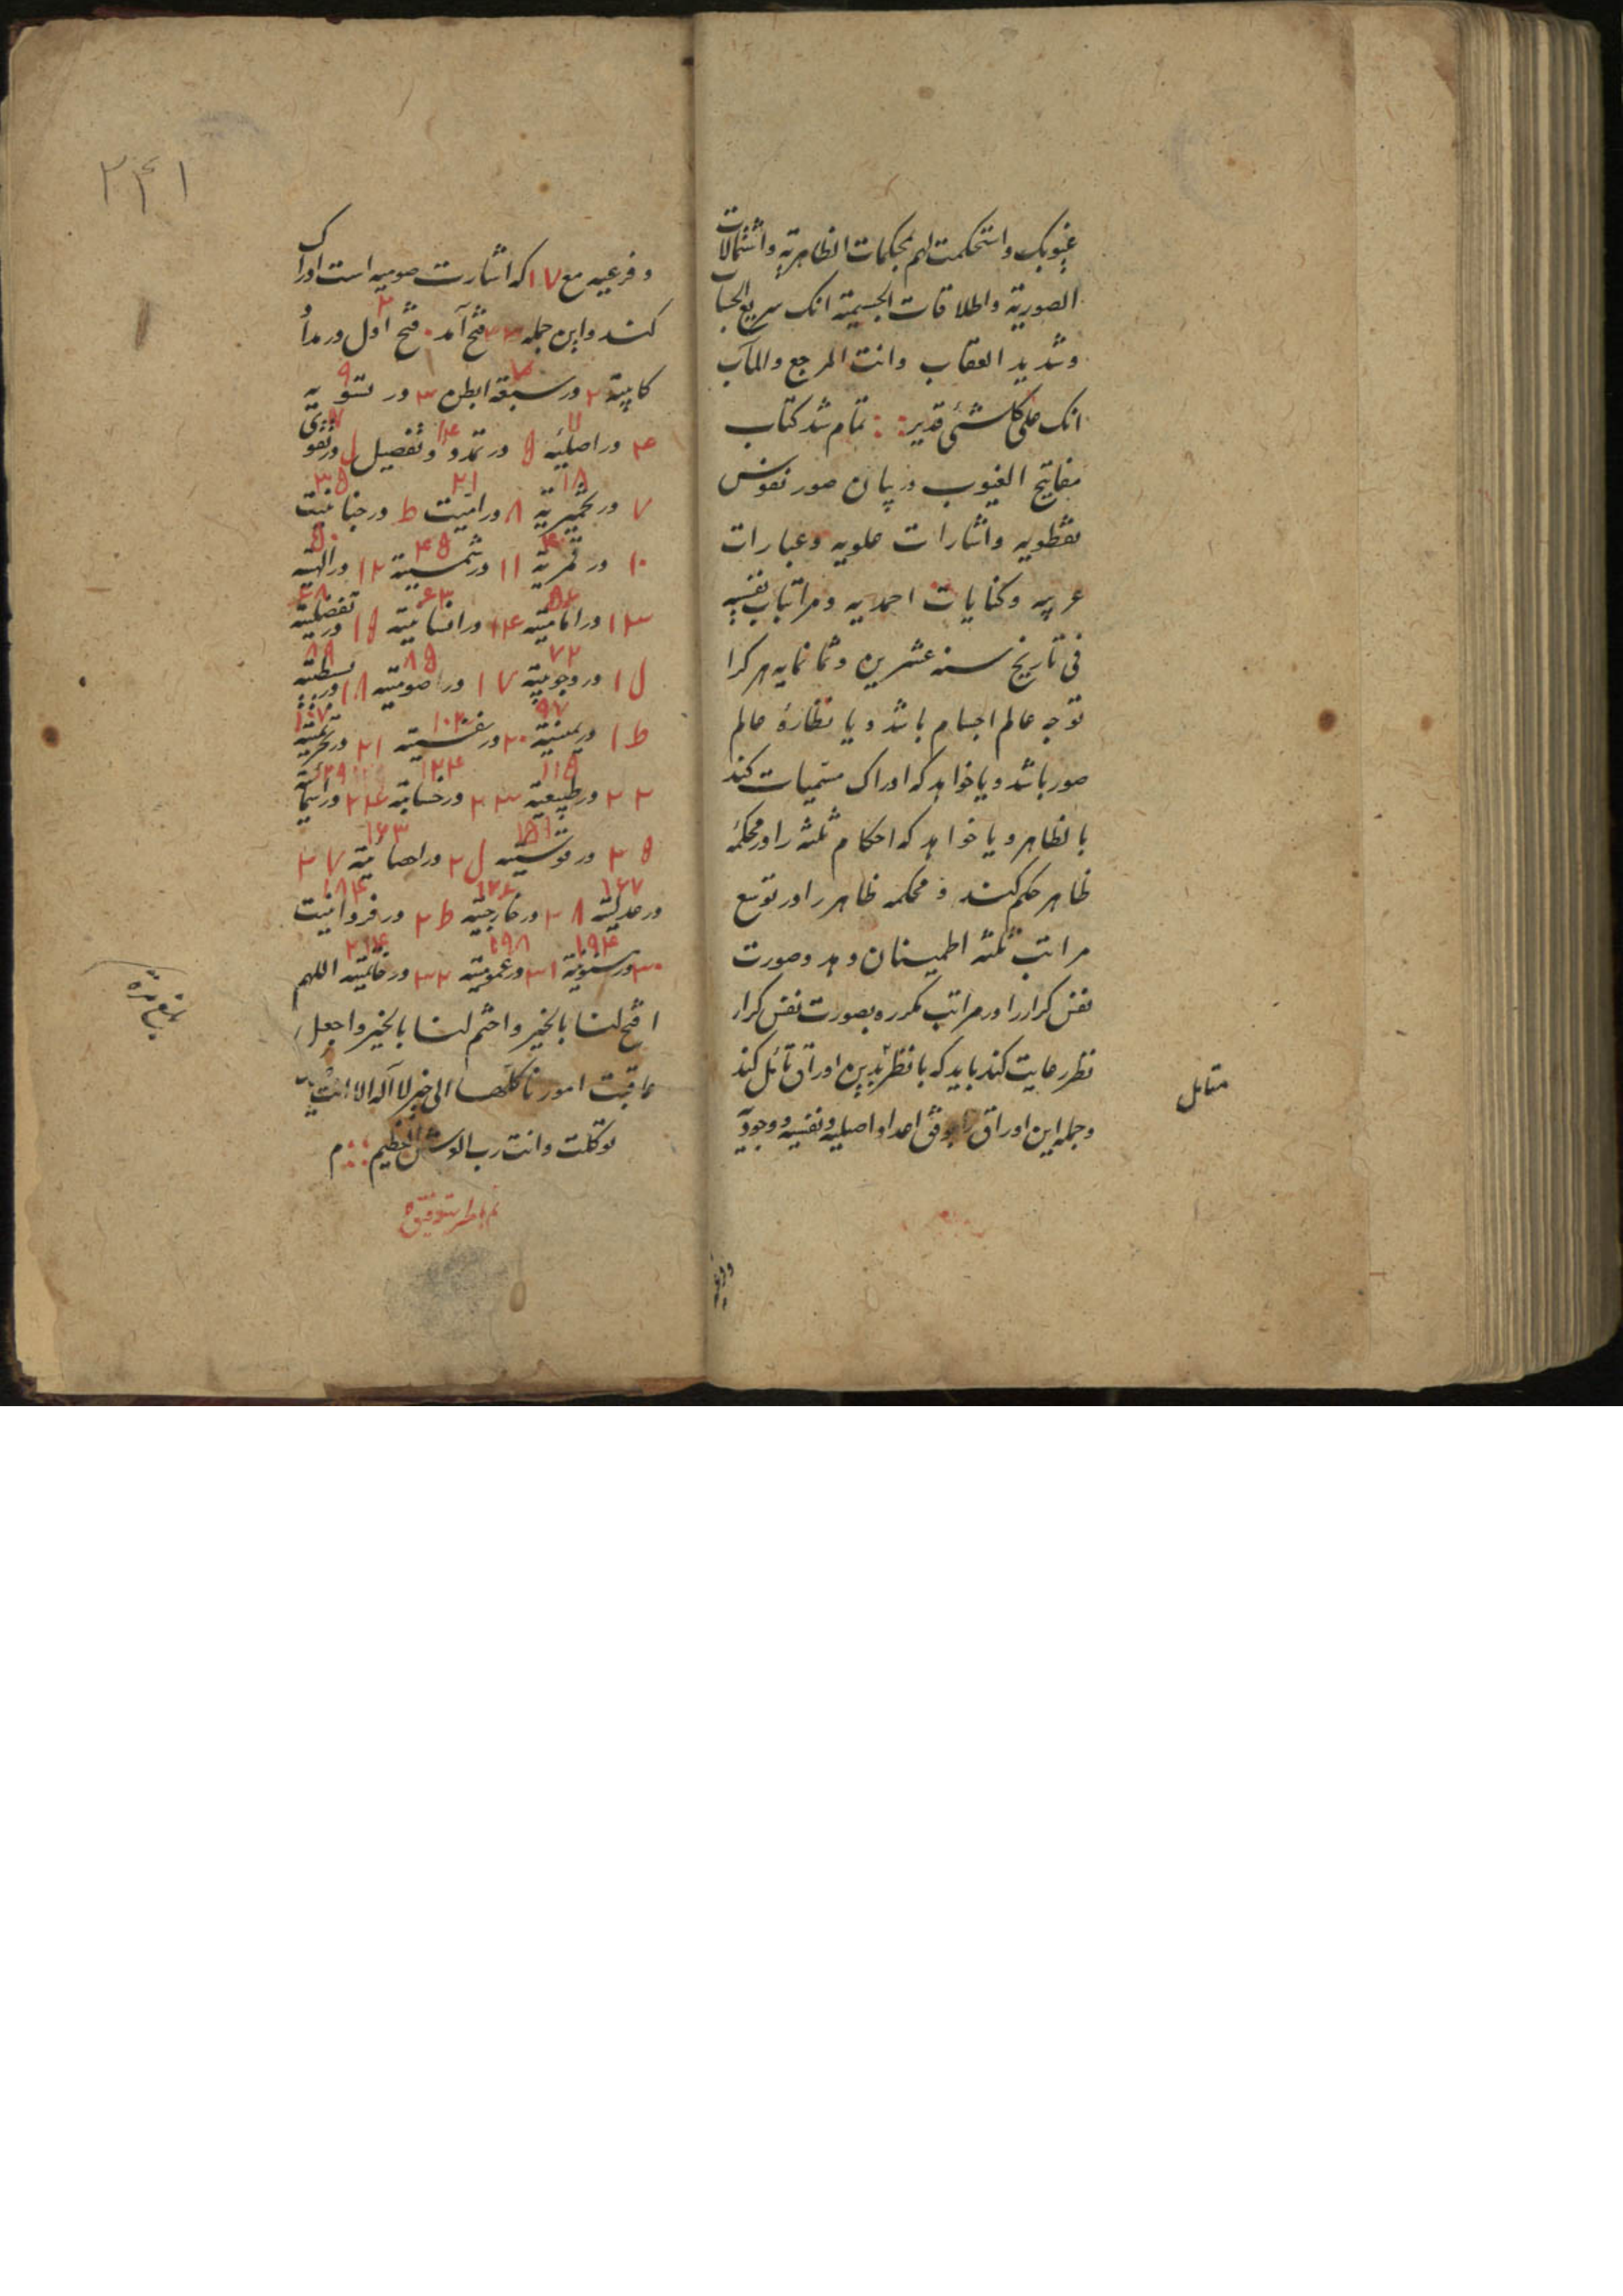 غیوبک واستحکمت لهم بمحکمات الظاهریة واشتمالات
الصوریة واطلاقات الجسیمة انک سریع الحساب
وشدید العقاب وانت المرجع والمآب
انک علی کل شئ قدیر تمام شد کتاب
مفاتیح الغیوب در بیان صور نقوش
نقطویه واشارات علویه وعبارات
عربیه وکنایات احمدیه ومراتبات نفسیه
فی تاریخ سنه عشرین وثمانمایه هر کرا
توجه عالم اجسام باشد ویا نظارهٔ عالم
صور باشد ویا خواهد که ادراک مسمیات کند
بالظاهر ویا خواهد که احکام ثلثه را در محکمهٔ
ظاهر حکم کند و محکمه ظاهر را در توسع
مراتب ثلثه اطمینان دهد وصورت
نفس کرار را در مراتب مکرره بصورت نفس کرار
نظر رعایت کند باید که با نظر بدین اوراق تأمل کند
وجمله این اوراق را بوفق اعداد اصلیه ونفسیه ووجودیه
متامل
۲۴۱
وفرعیه مع ۱۷ که اشارت صومیه است ادراک
کند واین جمله ۳۳ فتح آمد فتح اول در مدأ
کابیة ۲ در سبقه ابطن ۳ در تسویه
۴ در اصلیه ۵ در تمدد وتفصیل ل در تقوی
۷ در تخمیریة ۸ در انیت ط در
۱۰ در قمریة ۱۱ در شمسیة ۱۲ در الهیه
۱۳ در اناسیة ۱۴ در انسانیة ۱۵ در تفضیلیه
ل۱ در وجوبیة ۱۷ در صومیة ۱۸ در بسطیه
ط۱ در یمینیة ۲۰ در نفسیة ۲۱ در
۲۲ در طبیعیة ۲۳ در ۲۴ در
۲۵ در قوسیة ل۲ در ۲۷
در عدلیة ۲۸ در خارجیة ط۲ در فردانیت
۳۰ در ۳۱ در عمومیة ۳۲ در خاتمیة اللهم
افتح لنا بالخیر واختم لنا بالخیر واجعل
عاقبت امورنا کلها الی خیر لا اله الا انت علیک
توکلت وانت رب العرش العظیم م